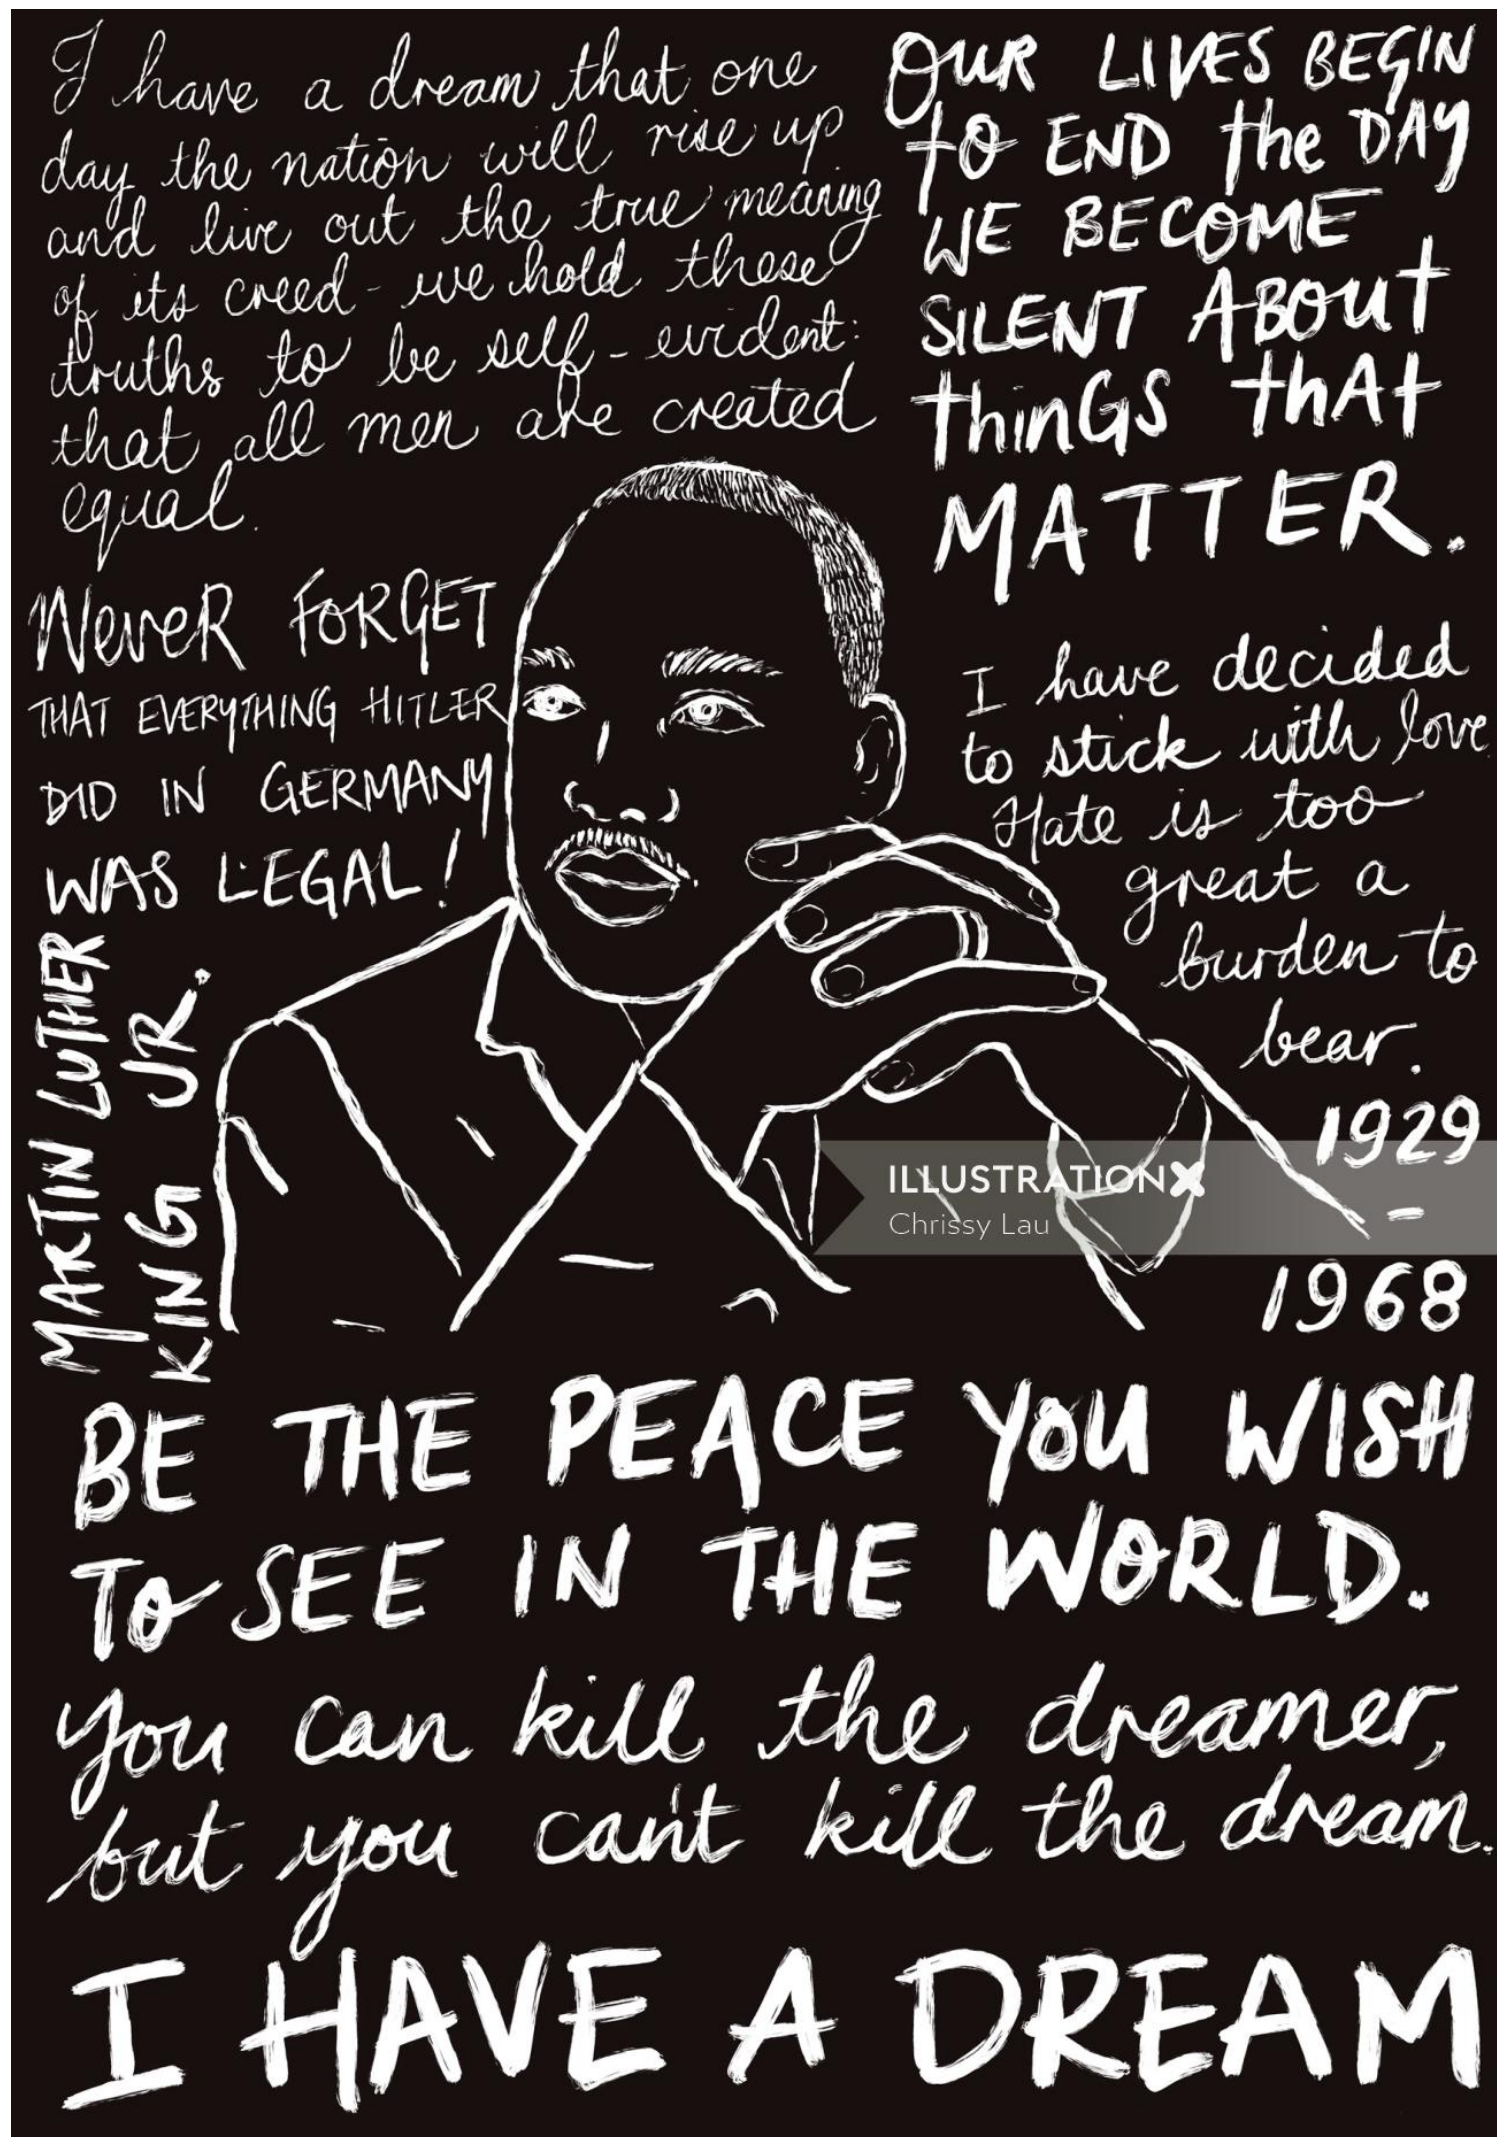 I have a dream that one
day the nation will rise up
and live out the true meaning
of its creed - we hold these
truths to be self-evident:
that all men are created
equal.
OUR LIVES BEGIN
to END the DAY
WE BECOME
SILENT ABOUt
thinGS thAt
MATTER.
NeveR FORGET
THAT EVERYTHING HITLER
DID IN GERMANY
WAS LEGAL!
I have decided
to stick with love.
Hate is too
great a
burden to
bear.
MARTIN LUTHER
KING JR.
1929
-
1968
ILLUSTRATIONX
Chrissy Lau
BE THE PEACE YOU WISH
To SEE IN THE WORLD.
You can kill the dreamer,
but you can't kill the dream.
I HAVE A DREAM